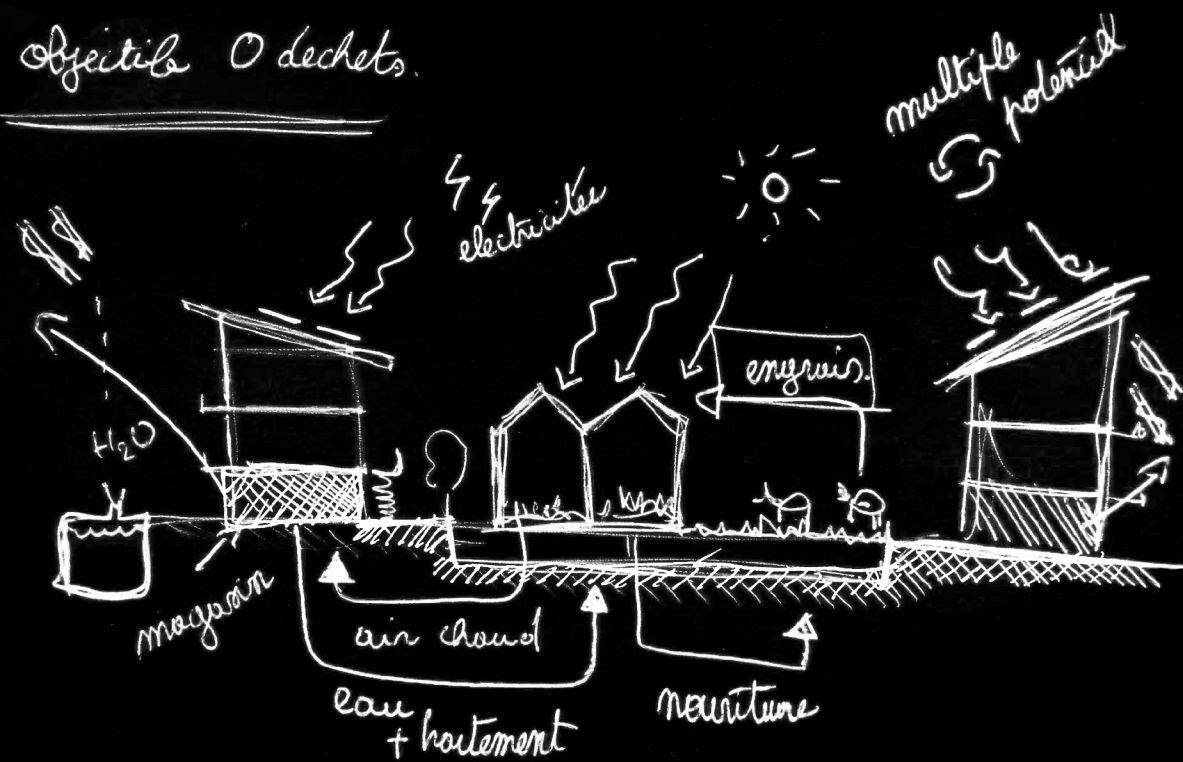 objectife 0 dechets.
multiple
potentiel
electricitée
engrais.
H₂O
magasin
air chaud
eau
+ traitement
nouriture